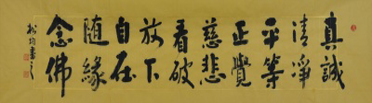 真誠
清淨
平等
正覺
慈悲
看破
放下
自在
随緣
念佛